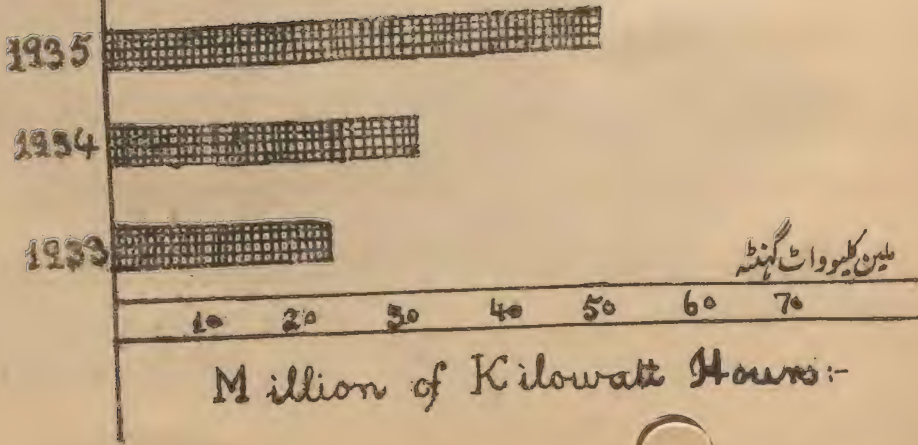 1935
1934
1933
ملین کلیو واٹ گہنٹہ
10 20 30 40 50 60 70
Million of Kilowatt Hours:-